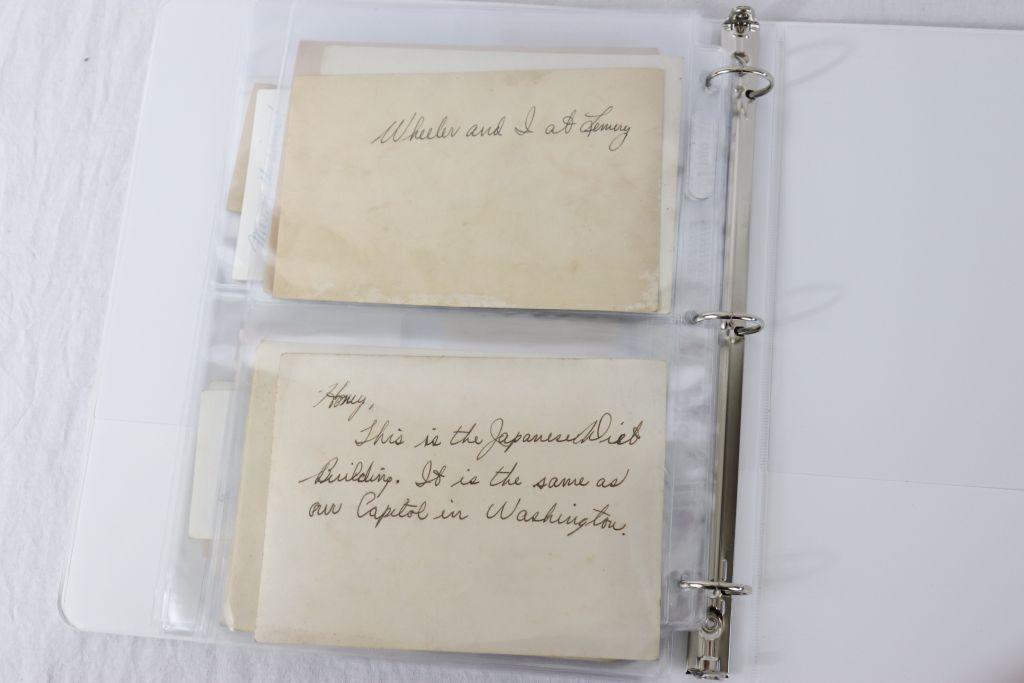 Wheeler and I at Lemery
Honey,
This is the Japanese Diet
Building. It is the same as
our Capitol in Washington.